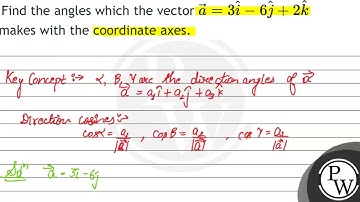 Find the angles which the vector a⃗ = 3î − 6ĵ + 2k̂
makes with the coordinate axes.
Key Concept :→ α, β, γ are the direction angles of a⃗
a⃗ = a₁î + a₂ĵ + a₃k̂
Direction cosines :→
cosα = a₁/|a⃗| , cosβ = a₂/|a⃗| , cosγ = a₃/|a⃗|
Solⁿ a⃗ = 3î − 6ĵ
P
W